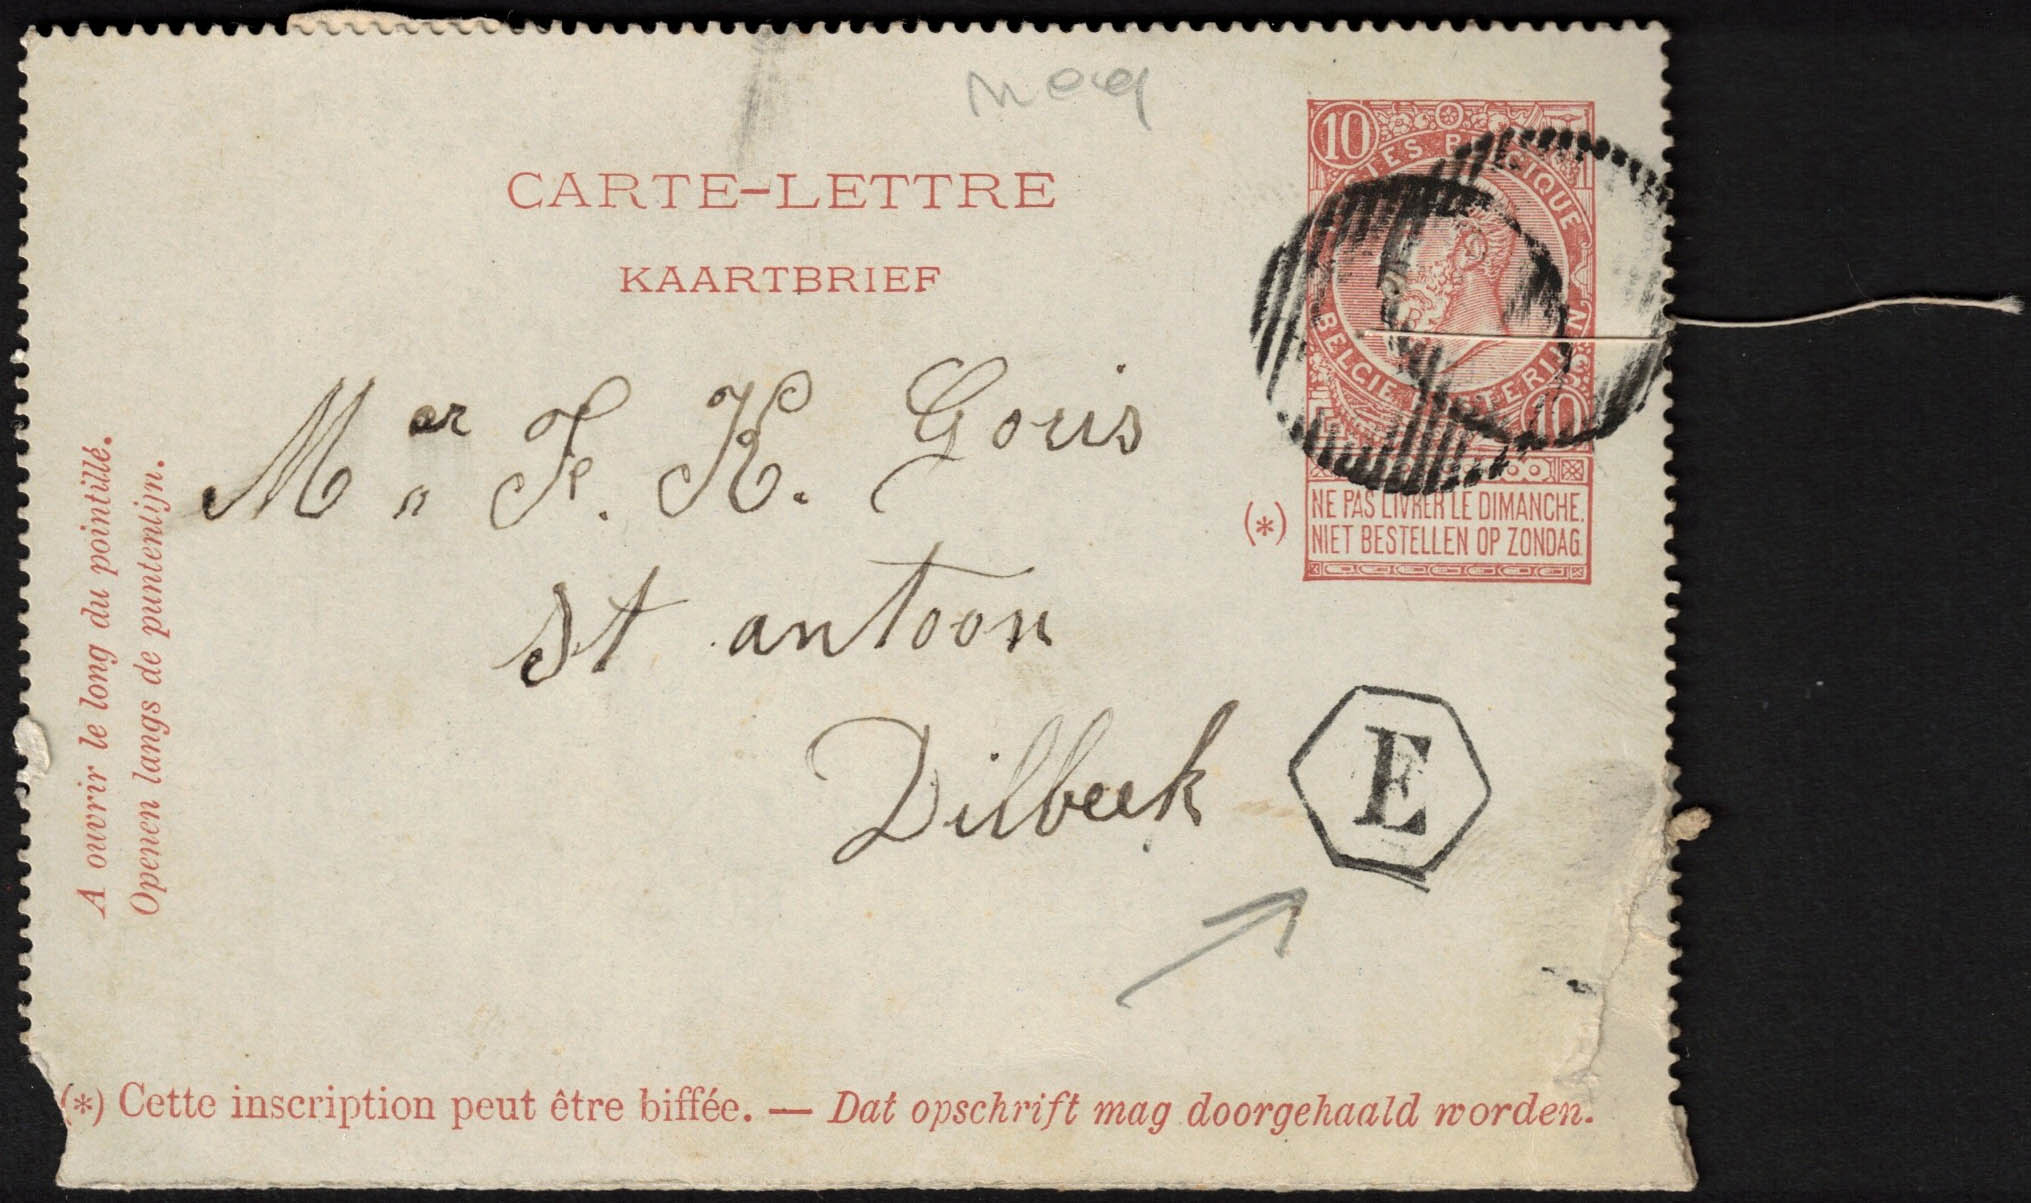 CARTE-LETTRE
KAARTBRIEF
10
POSTES BELGIQUE
BELGIE POSTERIJEN
10
(*)
NE PAS LIVRER LE DIMANCHE.
NIET BESTELLEN OP ZONDAG.
Mer F. K. Goris
St antoon
Dilbeek
E
A ouvrir le long du pointillé.
Openen langs de puntenlijn.
(*) Cette inscription peut être biffée. — Dat opschrift mag doorgehaald worden.